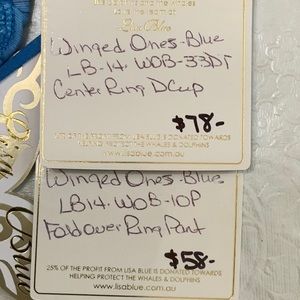 Lisa Blue
Winged Ones-Blue
LB-14-WOB-33DT
Center Ring D Cup
$78-
25% OF THE PROFIT FROM LISA BLUE IS DONATED TOWARDS
HELPING PROTECT THE WHALES & DOLPHINS
www.lisablue.com.au
Winged Ones-Blue
LB14-WOB-10P
Foldover Ring Pant
$58-
25% OF THE PROFIT FROM LISA BLUE IS DONATED TOWARDS
HELPING PROTECT THE WHALES & DOLPHINS
www.lisablue.com.au
Blue